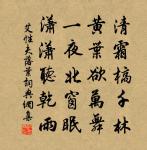 清霜槁千林
黄葉欲萬舞
一夜北窗眠
瀟瀟聽乾雨
艾性夫落葉詞典網集